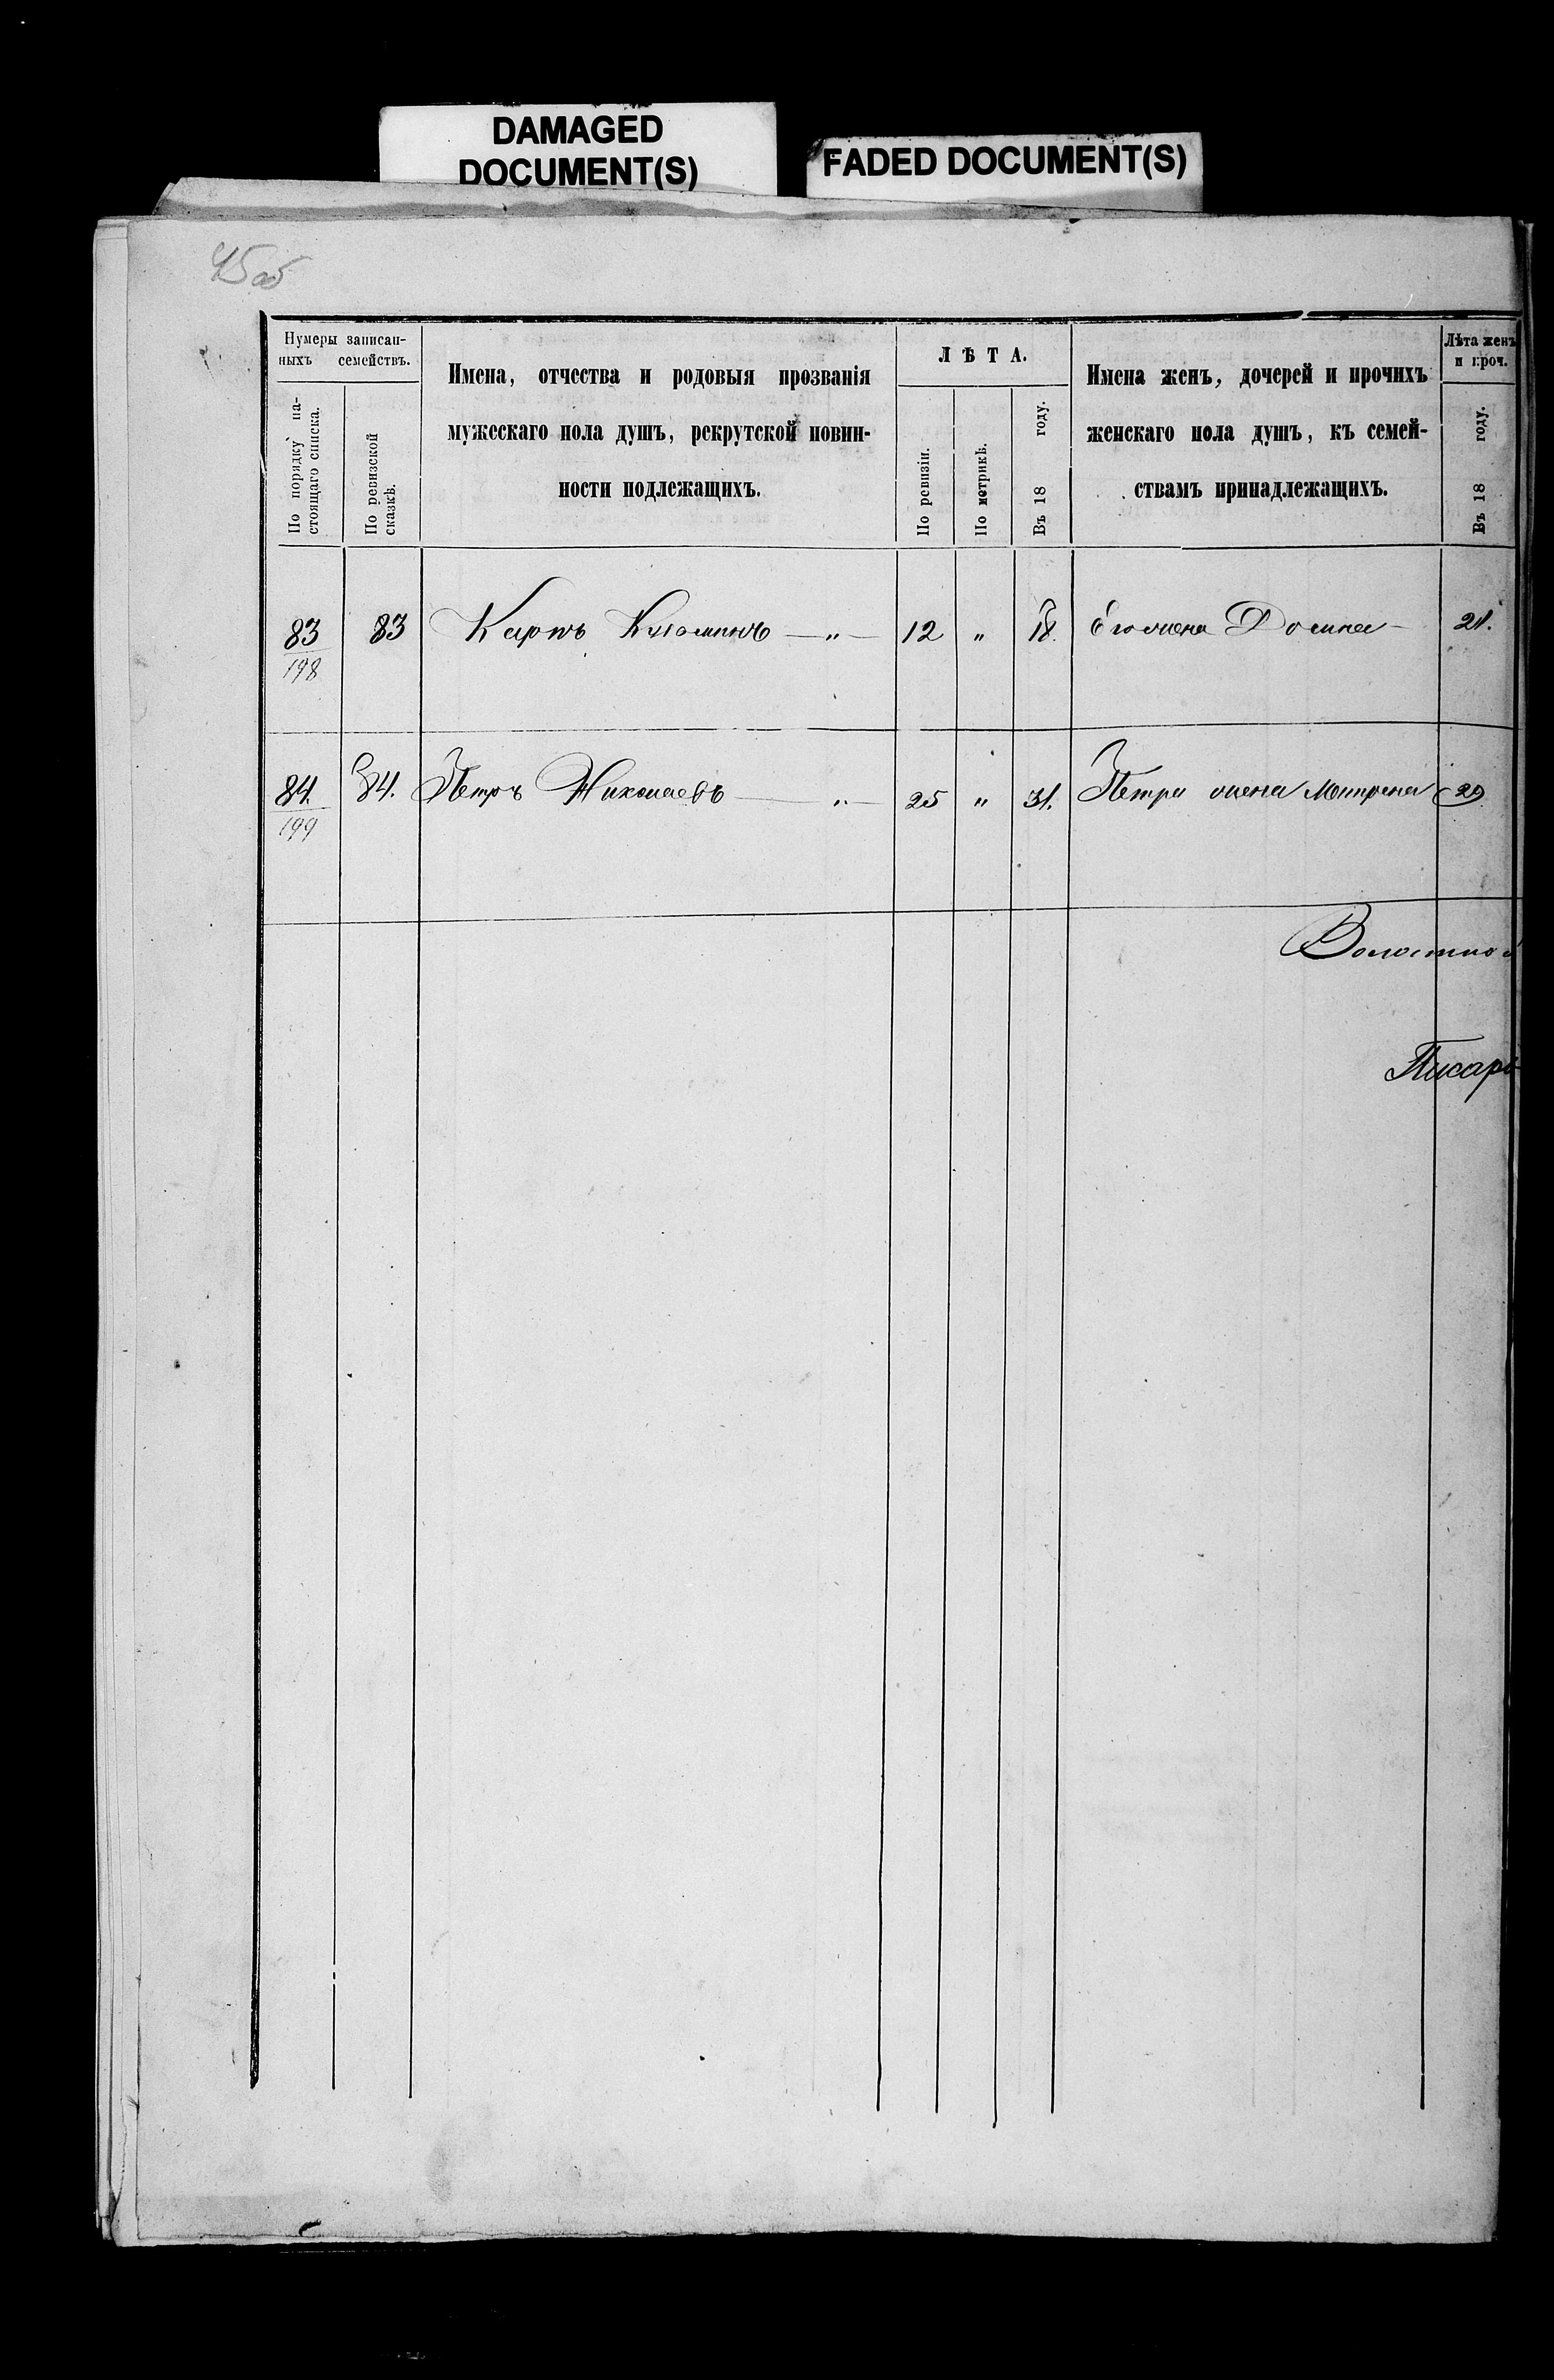 DAMAGED
DOCUMENT(S)
FADED DOCUMENT(S)
45об
Нумеры записан-
ныхъ семействъ.
По порядку на-
стоящаго списка.
По ревизской
сказкѣ.
Имена, отчества и родовыя прозванія
мужескаго пола душъ, рекрутской повин-
ности подлежащихъ.
ЛѢТА.
По ревизіи.
По метрикѣ.
Въ 18 году.
Имена женъ, дочерей и прочихъ
женскаго пола душъ, къ семей-
ствамъ принадлежащихъ.
Лѣта женъ
и проч.
Въ 18 году.
83 83 Карпъ Кузминъ — „ — 12 „ 18. Его жена Домна — 21.
198
84. 84. Петръ Николаевъ — „ — 25 „ 31. Петра жена Матрена 29
199
Волостной
Писарь